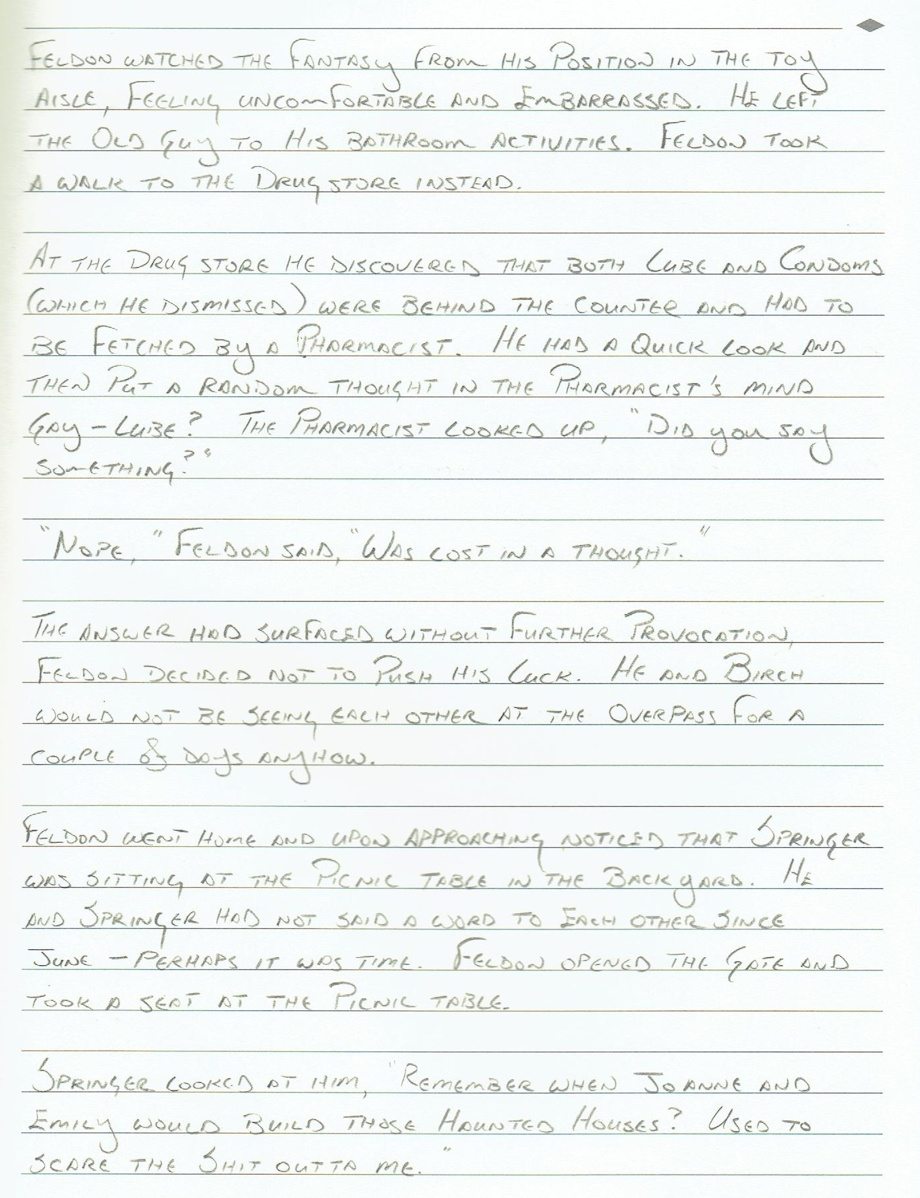 Feldon watched the Fantasy from His Position in the Toy
Aisle, Feeling uncomfortable and Embarrassed. He left
the Old Guy to His Bathroom Activities. Feldon took
a walk to the Drug store instead.
At the Drug store he discovered that both Lube and Condoms
(which he dismissed) were behind the counter and had to
be Fetched by a Pharmacist. He had a Quick look and
then Put a random thought in the Pharmacist's mind
Gay – Lube? The Pharmacist looked up, "Did you say
something?"
"Nope," Feldon said, "Was lost in a thought."
The answer had surfaced without Further Provocation,
Feldon decided not to Push his Luck. He and Birch
would not be seeing each other at the OverPass for a
couple of days anyhow.
Feldon went Home and upon approaching noticed that Springer
was sitting at the Picnic Table in the Backyard. He
and Springer had not said a word to Each other since
June – Perhaps it was time. Feldon opened the Gate and
took a seat at the Picnic table.
Springer looked at him, "Remember when Joanne and
Emily would Build those Haunted Houses? Used to
scare the Shit outta me."